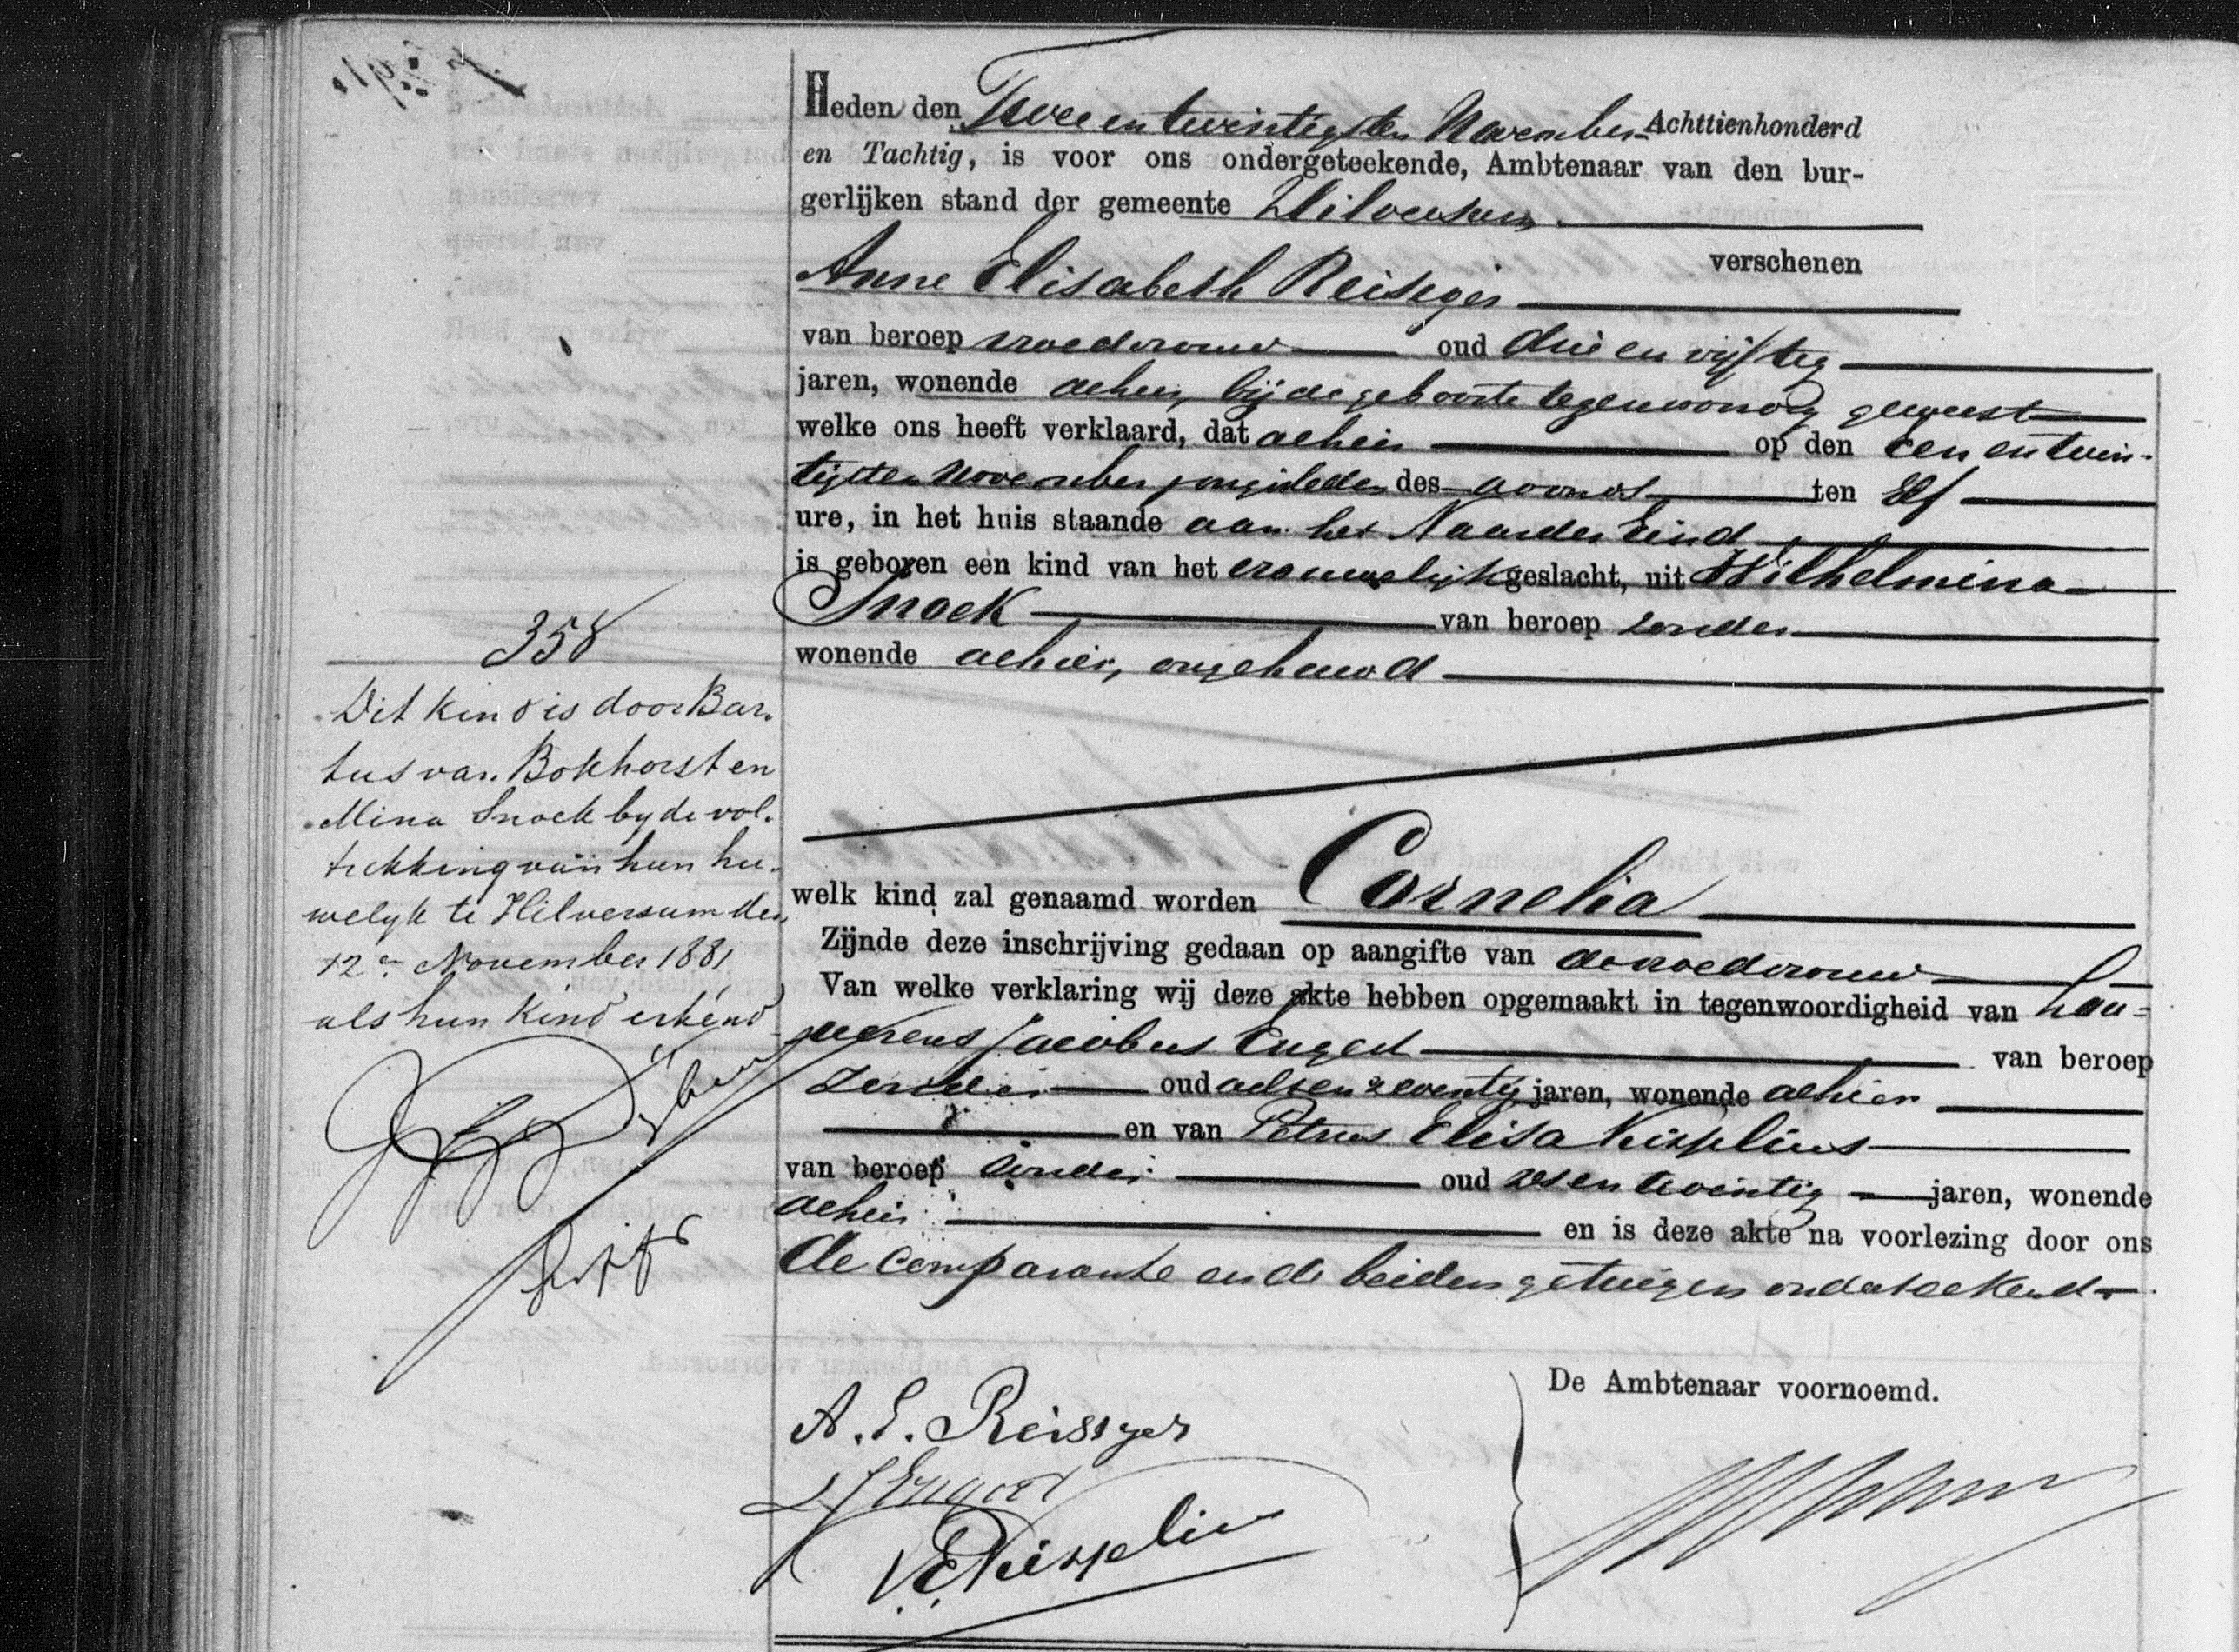 Heden den Twee en twintigsten November Achttienhonderd
en Tachtig, is voor ons ondergeteekende, Ambtenaar van den bur-
gerlijken stand der gemeente Hilversum
verschenen
Anne Elisabeth Reisiger
van beroep vroedvrouw oud drie en vijftig
jaren, wonende alhier, bij de geboorte tegenwoordig geweest
welke ons heeft verklaard, dat alhier op den een en twin-
tigsten November jongstleden des avonds ten Elf
ure, in het huis staande aan het Naarder Eind
is geboren een kind van het vrouwelijk geslacht, uit Wilhelmina
Snoek van beroep zonder
wonende alhier, ongehuwd
358
Dit kind is door Bar.
tus van Bokhorst en
Mina Snoek by de vol.
trekking van hun hu.
welyk te Hilversum den
12en November 1881
als hun kind erkend
welk kind zal genaamd worden Cornelia
Zijnde deze inschrijving gedaan op aangifte van de vroedvrouw
Van welke verklaring wij deze akte hebben opgemaakt in tegenwoordigheid van Lau=
werens Jacobus Engel van beroep
zonder oud acht en zeventig jaren, wonende alhier
en van Petrus Elisa
van beroep zonder oud zes en twintig jaren, wonende
alhier en is deze akte na voorlezing door ons
de comparante en de beiden getuigen onderteekend
De Ambtenaar voornoemd.
A. E. Reissger